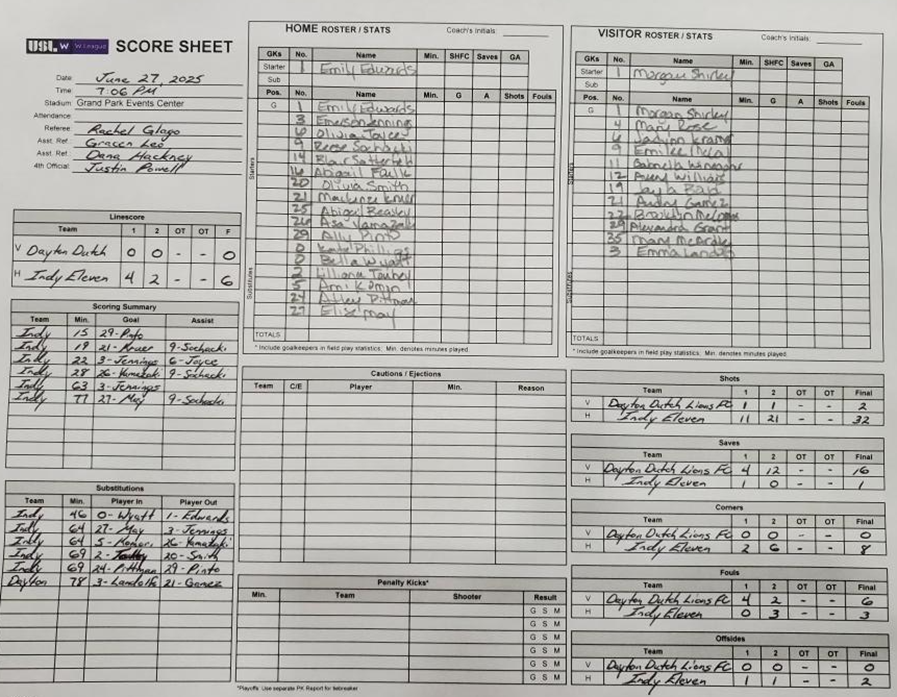 USL W W League SCORE SHEET
Date: June 27, 2025
Time: 7:06 PM
Stadium: Grand Park Events Center
Attendance:
Referee: Rachel Glago
Asst. Ref.: Gracen Leo
Asst. Ref.: Dana Hackney
4th Official: Justin Powell
Linescore
Team 1 2 OT OT F
V Dayton Dutch 0 0 - - 0
H Indy Eleven 4 2 - - 6
Scoring Summary
Team Min. Goal Assist
Indy 15 29-Pinto
Indy 19 21-Kruer 9-Sochacki
Indy 22 3-Jennings 6-Joyce
Indy 28 26-Yamazaki 9-Sochacki
Indy 63 3-Jennings
Indy 77 27-May 9-Sochacki
Substitutions
Team Min. Player In Player Out
Indy 46 0-Wyatt 1-Edwards
Indy 64 27-May 3-Jennings
Indy 64 5- 26-Yamazaki
Indy 69 2- 20-Smith
Indy 69 24-Pittman 29-Pinto
Dayton 78 3-Landolfe 21-Gamez
HOME ROSTER / STATS Coach's Initials:
GKs No. Name Min. SHFC Saves GA
Starter 1 Emily Edwards
Sub
Pos. No. Name Min. G A Shots Fouls
Starters
G 1 Emily Edwards
3 Emerson Jennings
6 Olivia Joyce
9 Reese Sochacki
14 Blair Satterfield
16 Abigail Faulk
20 Olivia Smith
21 Mackenzie Kruer
25 Abigail Beasley
26 Asa Yamazaki
29 Ally Pinto
Substitutes
0 Kate Phillips
0 Bella Wyatt
2 Lilliana
5 Ami
24 Ashley Pittman
27 Elise May
TOTALS
* Include goalkeepers in field play statistics; Min. denotes minutes played.
Cautions / Ejections
Team C/E Player Min. Reason
Penalty Kicks*
Min. Team Shooter Result
G S M
G S M
G S M
G S M
G S M
G S M
*Playoffs: Use separate PK Report for tiebreaker
VISITOR ROSTER / STATS Coach's Initials:
GKs No. Name Min. SHFC Saves GA
Starter 1 Morgan Shirley
Sub
Pos. No. Name Min. G A Shots Fouls
Starters
G 1 Morgan Shirley
4 Mary Rose
6 Jadynn
9 Emilee
11 Gabriella
12 Avery Williams
19 Jayla
21 Audrey Gamez
22 Brooklyn
29 Alexandra Grant
35 Mary
3 Emma
Substitutes
TOTALS
* Include goalkeepers in field play statistics; Min. denotes minutes played.
Shots
Team 1 2 OT OT Final
V Dayton Dutch Lions FC 1 1 - - 2
H Indy Eleven 11 21 - - 32
Saves
Team 1 2 OT OT Final
V Dayton Dutch Lions FC 4 12 - - 16
H Indy Eleven 1 0 - - 1
Corners
Team 1 2 OT OT Final
V Dayton Dutch Lions FC 0 0 - - 0
H Indy Eleven 2 6 - - 8
Fouls
Team 1 2 OT OT Final
V Dayton Dutch Lions FC 4 2 - - 6
H Indy Eleven 0 3 - - 3
Offsides
Team 1 2 OT OT Final
V Dayton Dutch Lions FC 0 0 - - 0
H Indy Eleven 1 1 - - 2